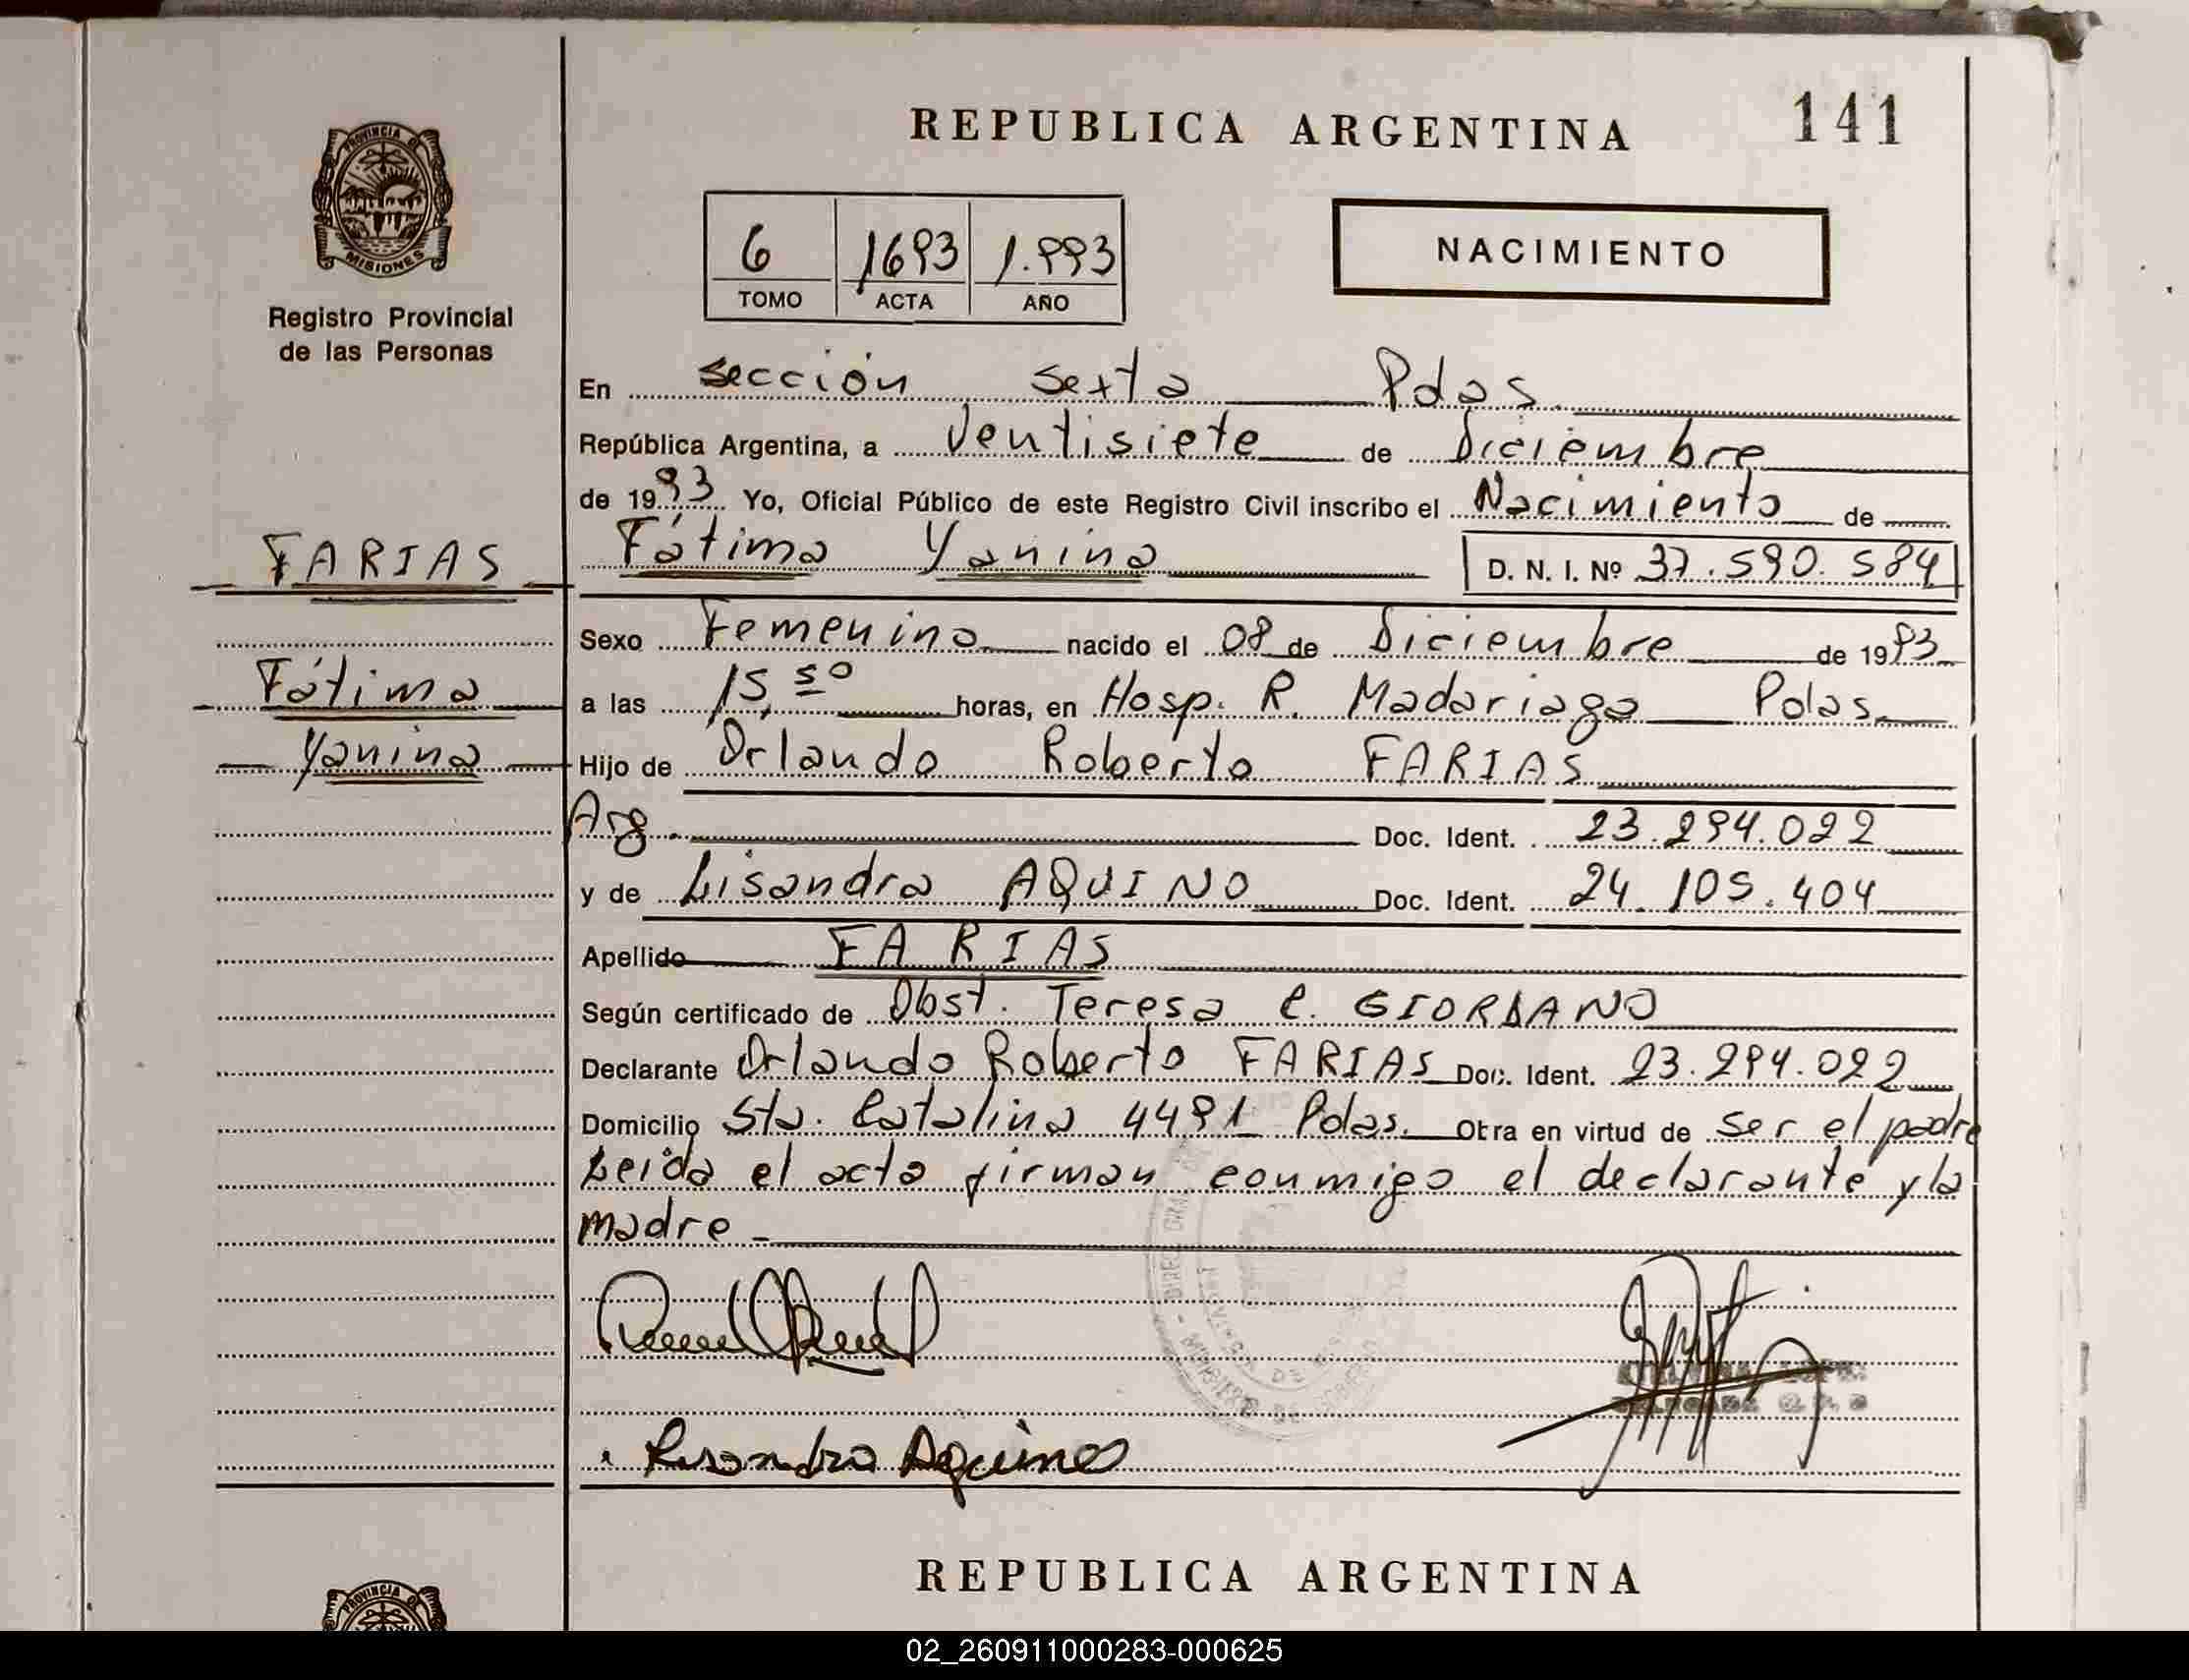 REPUBLICA ARGENTINA
141
PROVINCIA DE
MISIONES
Registro Provincial
de las Personas
6 1693 1.993
TOMO ACTA AÑO
NACIMIENTO
En sección sexta Pdas.
República Argentina, a Ventisiete de Diciembre
de 1993 Yo, Oficial Público de este Registro Civil inscribo el Nacimiento de
FARIAS
Fátima Yanina D. N. I. Nº 37.590.584
Sexo Femenino nacido el 08 de Diciembre de 1993
Fátima
a las 15,50 horas, en Hosp. R. Madariaga Pdas.
Yanina
Hijo de Orlando Roberto FARIAS
Arg. Doc. Ident. 23.294.022
y de Lisandra AQUINO Doc. Ident. 24.105.404
Apellido FARIAS
Según certificado de Obst. Teresa C. GIORDANO
Declarante Orlando Roberto FARIAS Doc. Ident. 23.294.022
Domicilio Sta. Catalina 4491 Pdas. Otra en virtud de ser el padre
Leida el acta firman conmigo el declarante y la
madre -
Lisandra Aquino
REPUBLICA ARGENTINA
PROVINCIA DE
02_260911000283-000625